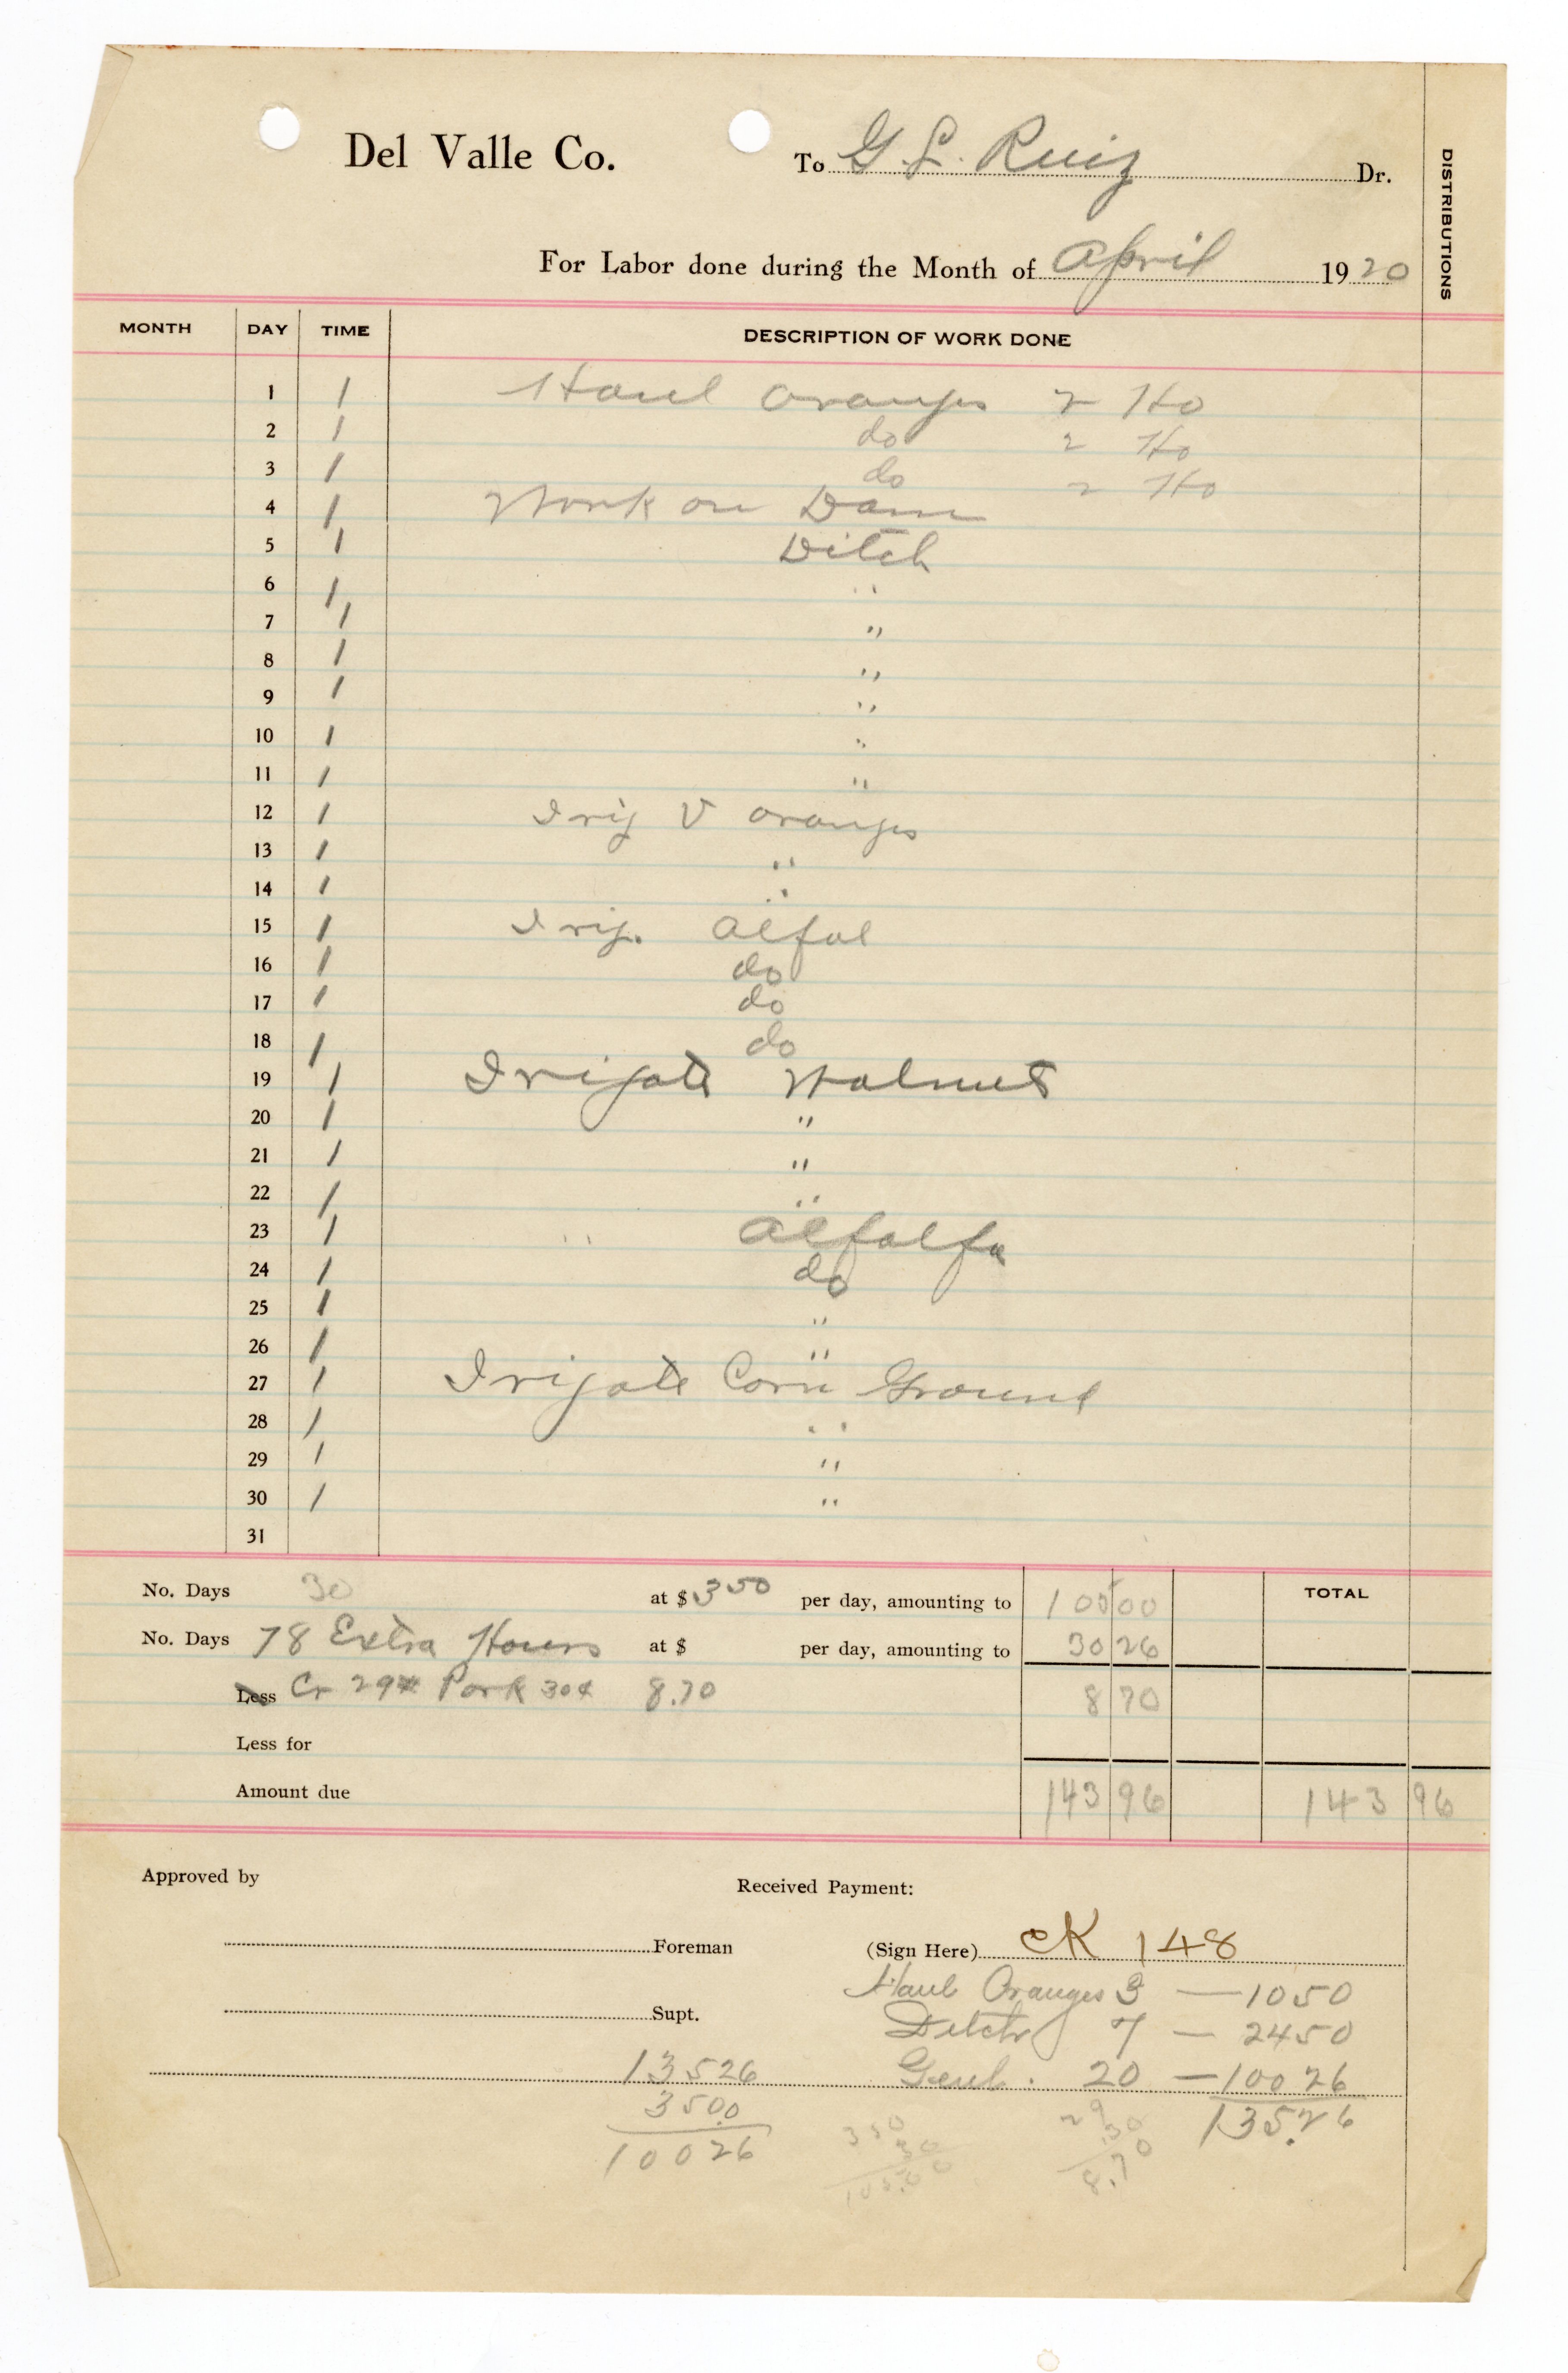 Del Valle Co. To G. L. Ruiz Dr.
DISTRIBUTIONS
For Labor done during the Month of April 1920
MONTH DAY TIME DESCRIPTION OF WORK DONE
1 1 Haul oranges 2 Ho
2 1 do 2 Ho
3 1 do 2 Ho
4 1 Work on Dam
5 1 Ditch
6 1 "
7 1 "
8 1 "
9 1 "
10 1 "
11 1 "
12 1 Irig V oranges
13 1 "
14 1 "
15 1 Irig. Alfal
16 1 do
17 1 do
18 1 do
19 1 Irigate Walnuts
20 1 "
21 1 "
22 1 "
23 1 " Alfalfa
24 1 do
25 1 "
26 1 "
27 1 Irigate Corn Ground
28 1 "
29 1 "
30 1 "
31
No. Days 30 at $ 350 per day, amounting to 105 00 TOTAL
No. Days 78 Extra Hours at $ per day, amounting to 30 26
Less Cr 29# Pork 30¢ 8.70 8 70
Less for
Amount due 143 96 143 96
Approved by Received Payment:
Foreman (Sign Here) CK 148
Haul Oranges 3 — 1050
Supt. Ditch 7 — 2450
13526 Genl. 20 — 10026
3500 350 29 135.26
10026 30 .30
105.00 8.70